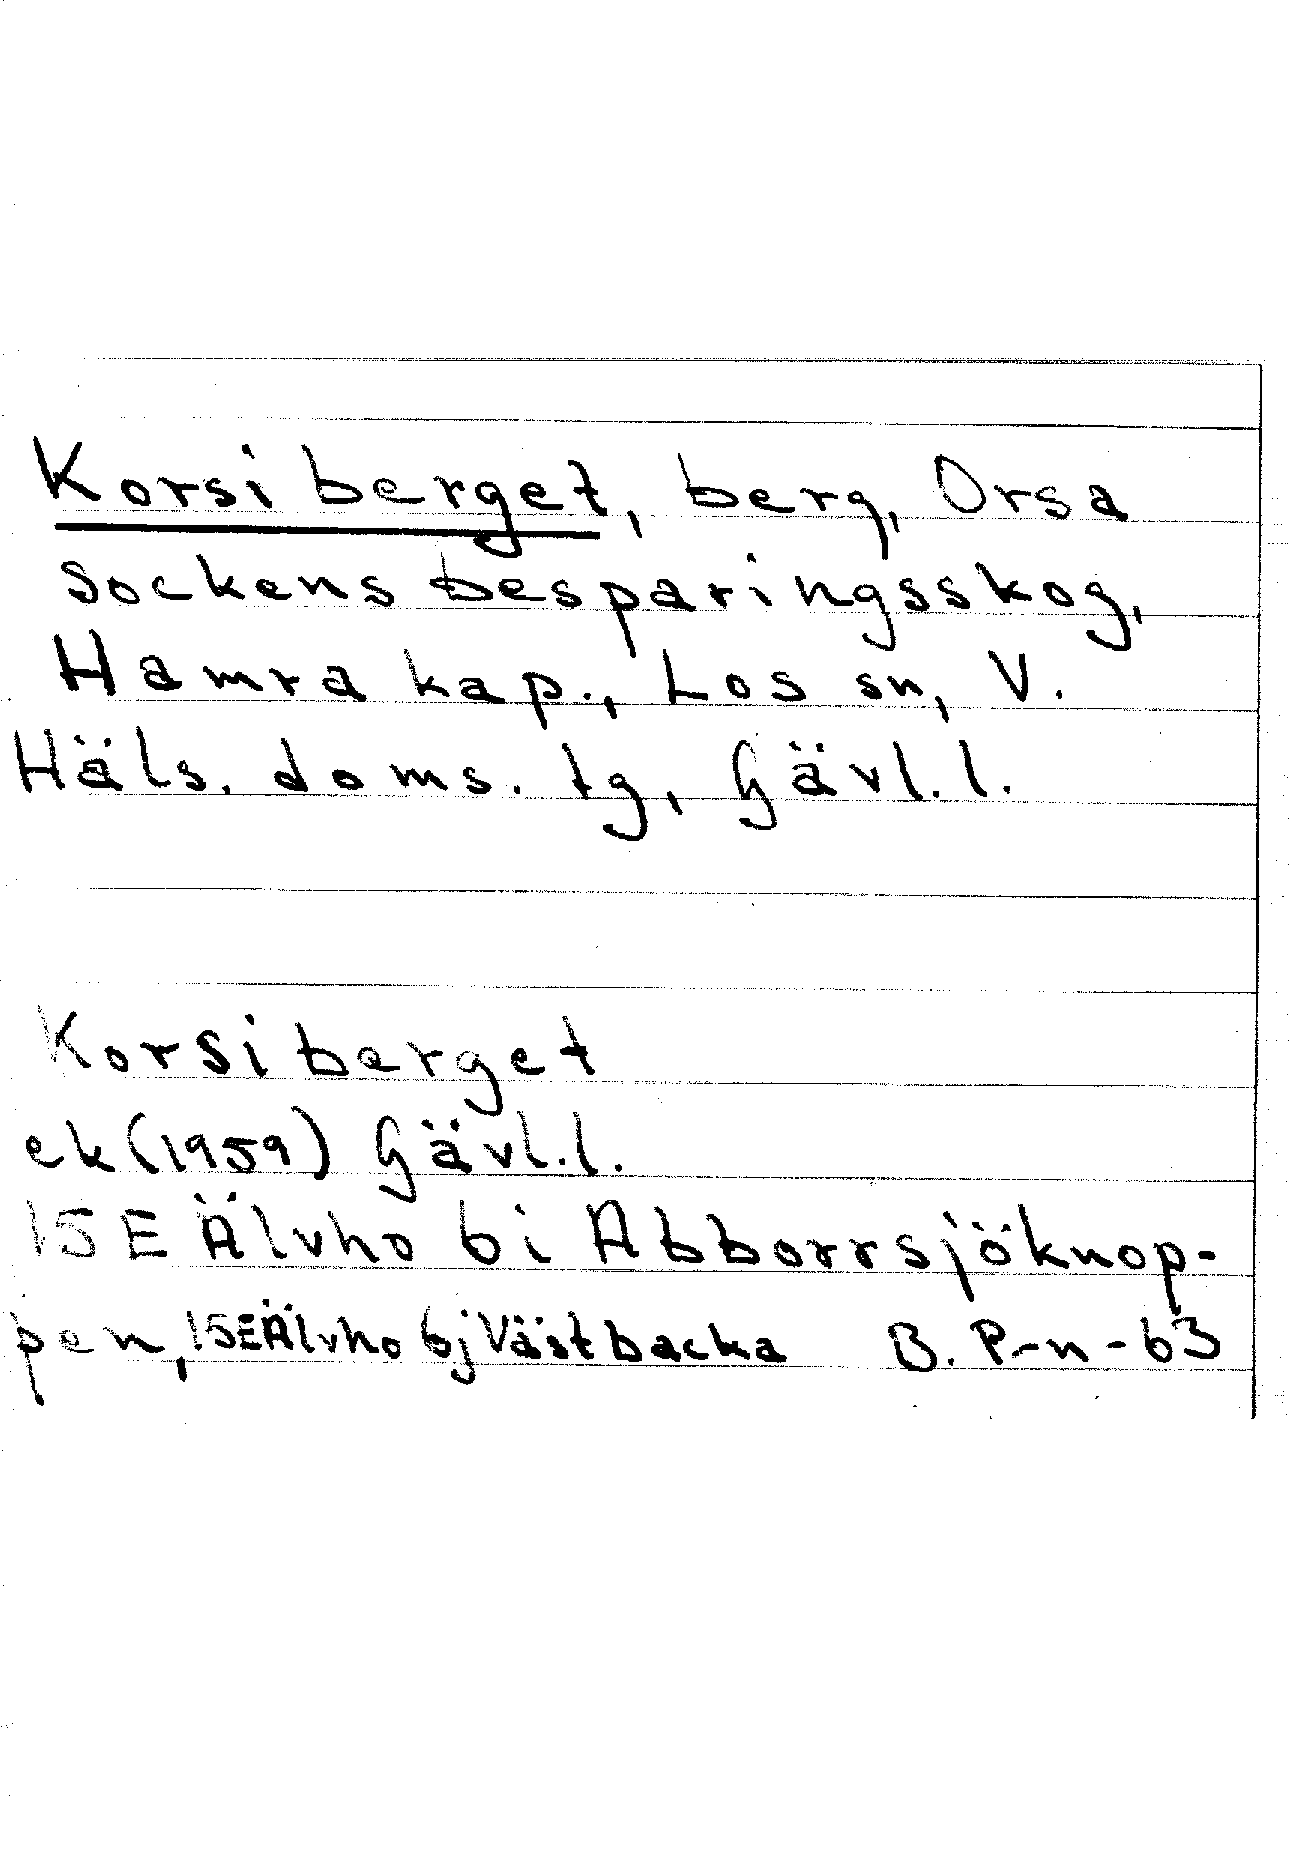 Korsiberget, berg, Orsa
sockens besparingsskog,
Hamra kap., Los sn, V.
Häls. doms. tg, Gävl. l.
Korsiberget
ek (1959) Gävl. l.
15E Älvho 6i Abborrsjöknop-
pen, 15E Älvho 6j Västbacka B. P-n-63